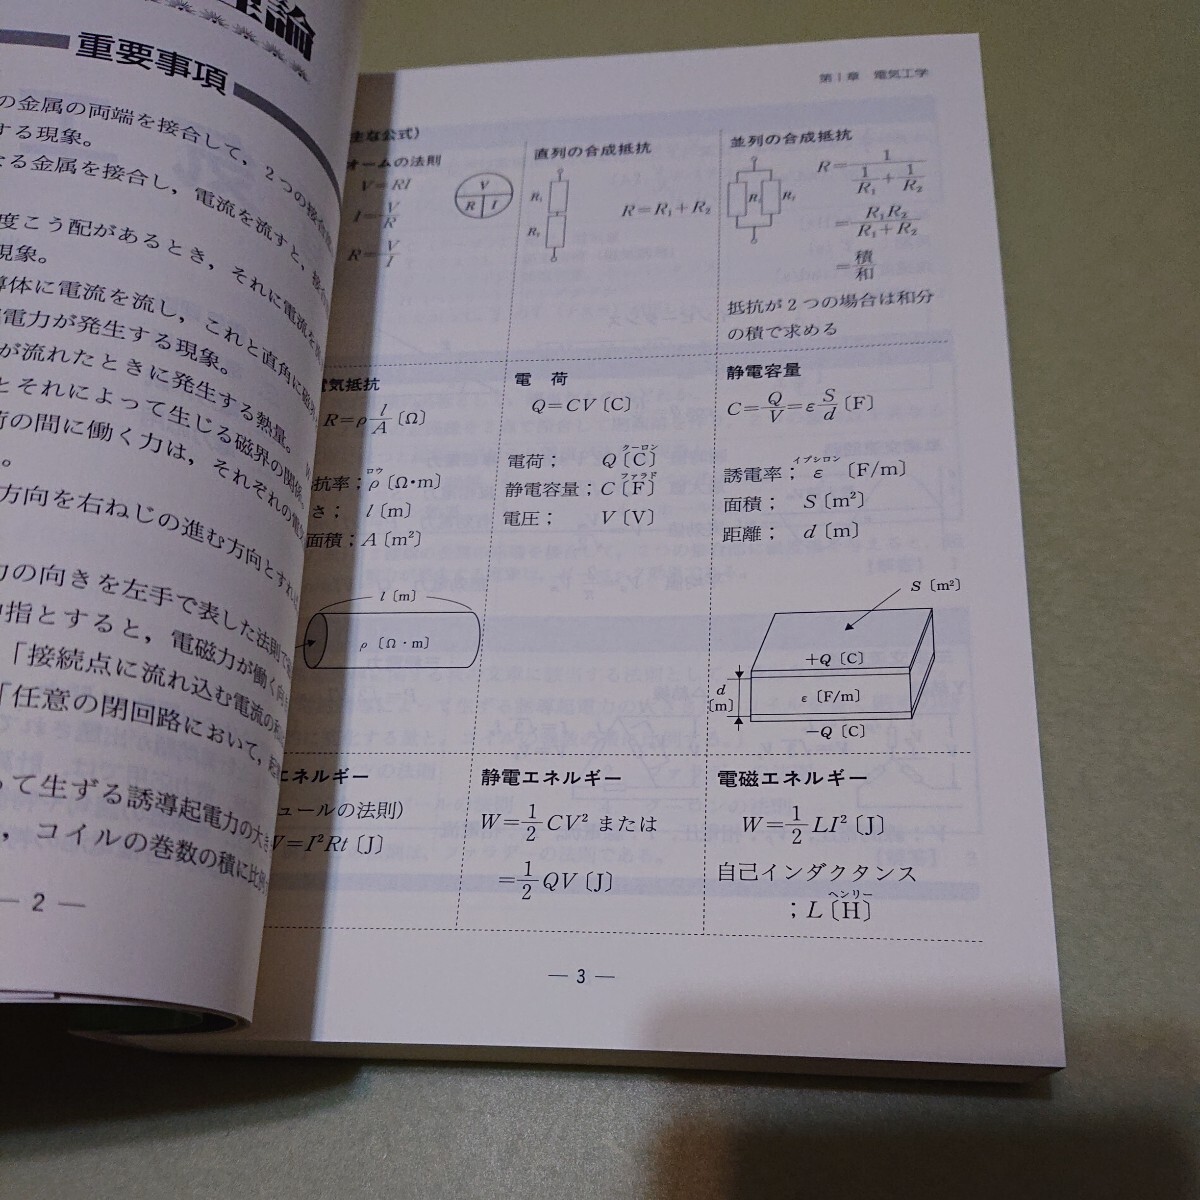 理論
重要事項
の金属の両端を接合して，2つの接合
する現象。
なる金属を接合し，電流を流すと，接合
度こう配があるとき，それに電流を
現象。
導体に電流を流し，これと直角に磁界
電力が発生する現象。
が流れたときに発生する熱量。
とそれによって生じる磁界の関係。
荷の間に働く力は，それぞれの電
。
方向を右ねじの進む方向とすれば
力の向きを左手で表した法則で
中指とすると，電磁力が働く向き
「接続点に流れ込む電流の
「任意の閉回路において，
って生ずる誘導起電力の大き
，コイルの巻数の積に比例
— 2 —
第1章　電気工学
主な公式）
オームの法則
V=RI
I=V/R
R=V/I
V
R I
直列の合成抵抗
R₁
R₂
R=R₁+R₂
並列の合成抵抗
R₁ R₂
R=1/(1/R₁+1/R₂)
=R₁R₂/(R₁+R₂)
=積/和
抵抗が2つの場合は和分
の積で求める
電気抵抗
R=ρ l/A〔Ω〕
抗率；ρ(ロウ)〔Ω・m〕
さ；l〔m〕
面積；A〔m²〕
l〔m〕
ρ〔Ω・m〕
電　荷
Q=CV〔C〕
電荷；Q〔C〕(クーロン)
静電容量；C〔F〕(ファラド)
電圧；V〔V〕
静電容量
C=Q/V=ε S/d〔F〕
誘電率；ε(イプシロン)〔F/m〕
面積；S〔m²〕
距離；d〔m〕
S〔m²〕
+Q〔C〕
d〔m〕
ε〔F/m〕
−Q〔C〕
エネルギー
ュールの法則）
W=I²Rt〔J〕
静電エネルギー
W=1/2 CV² または
=1/2 QV〔J〕
電磁エネルギー
W=1/2 LI²〔J〕
自己インダクタンス
；L〔H〕(ヘンリー)
— 3 —